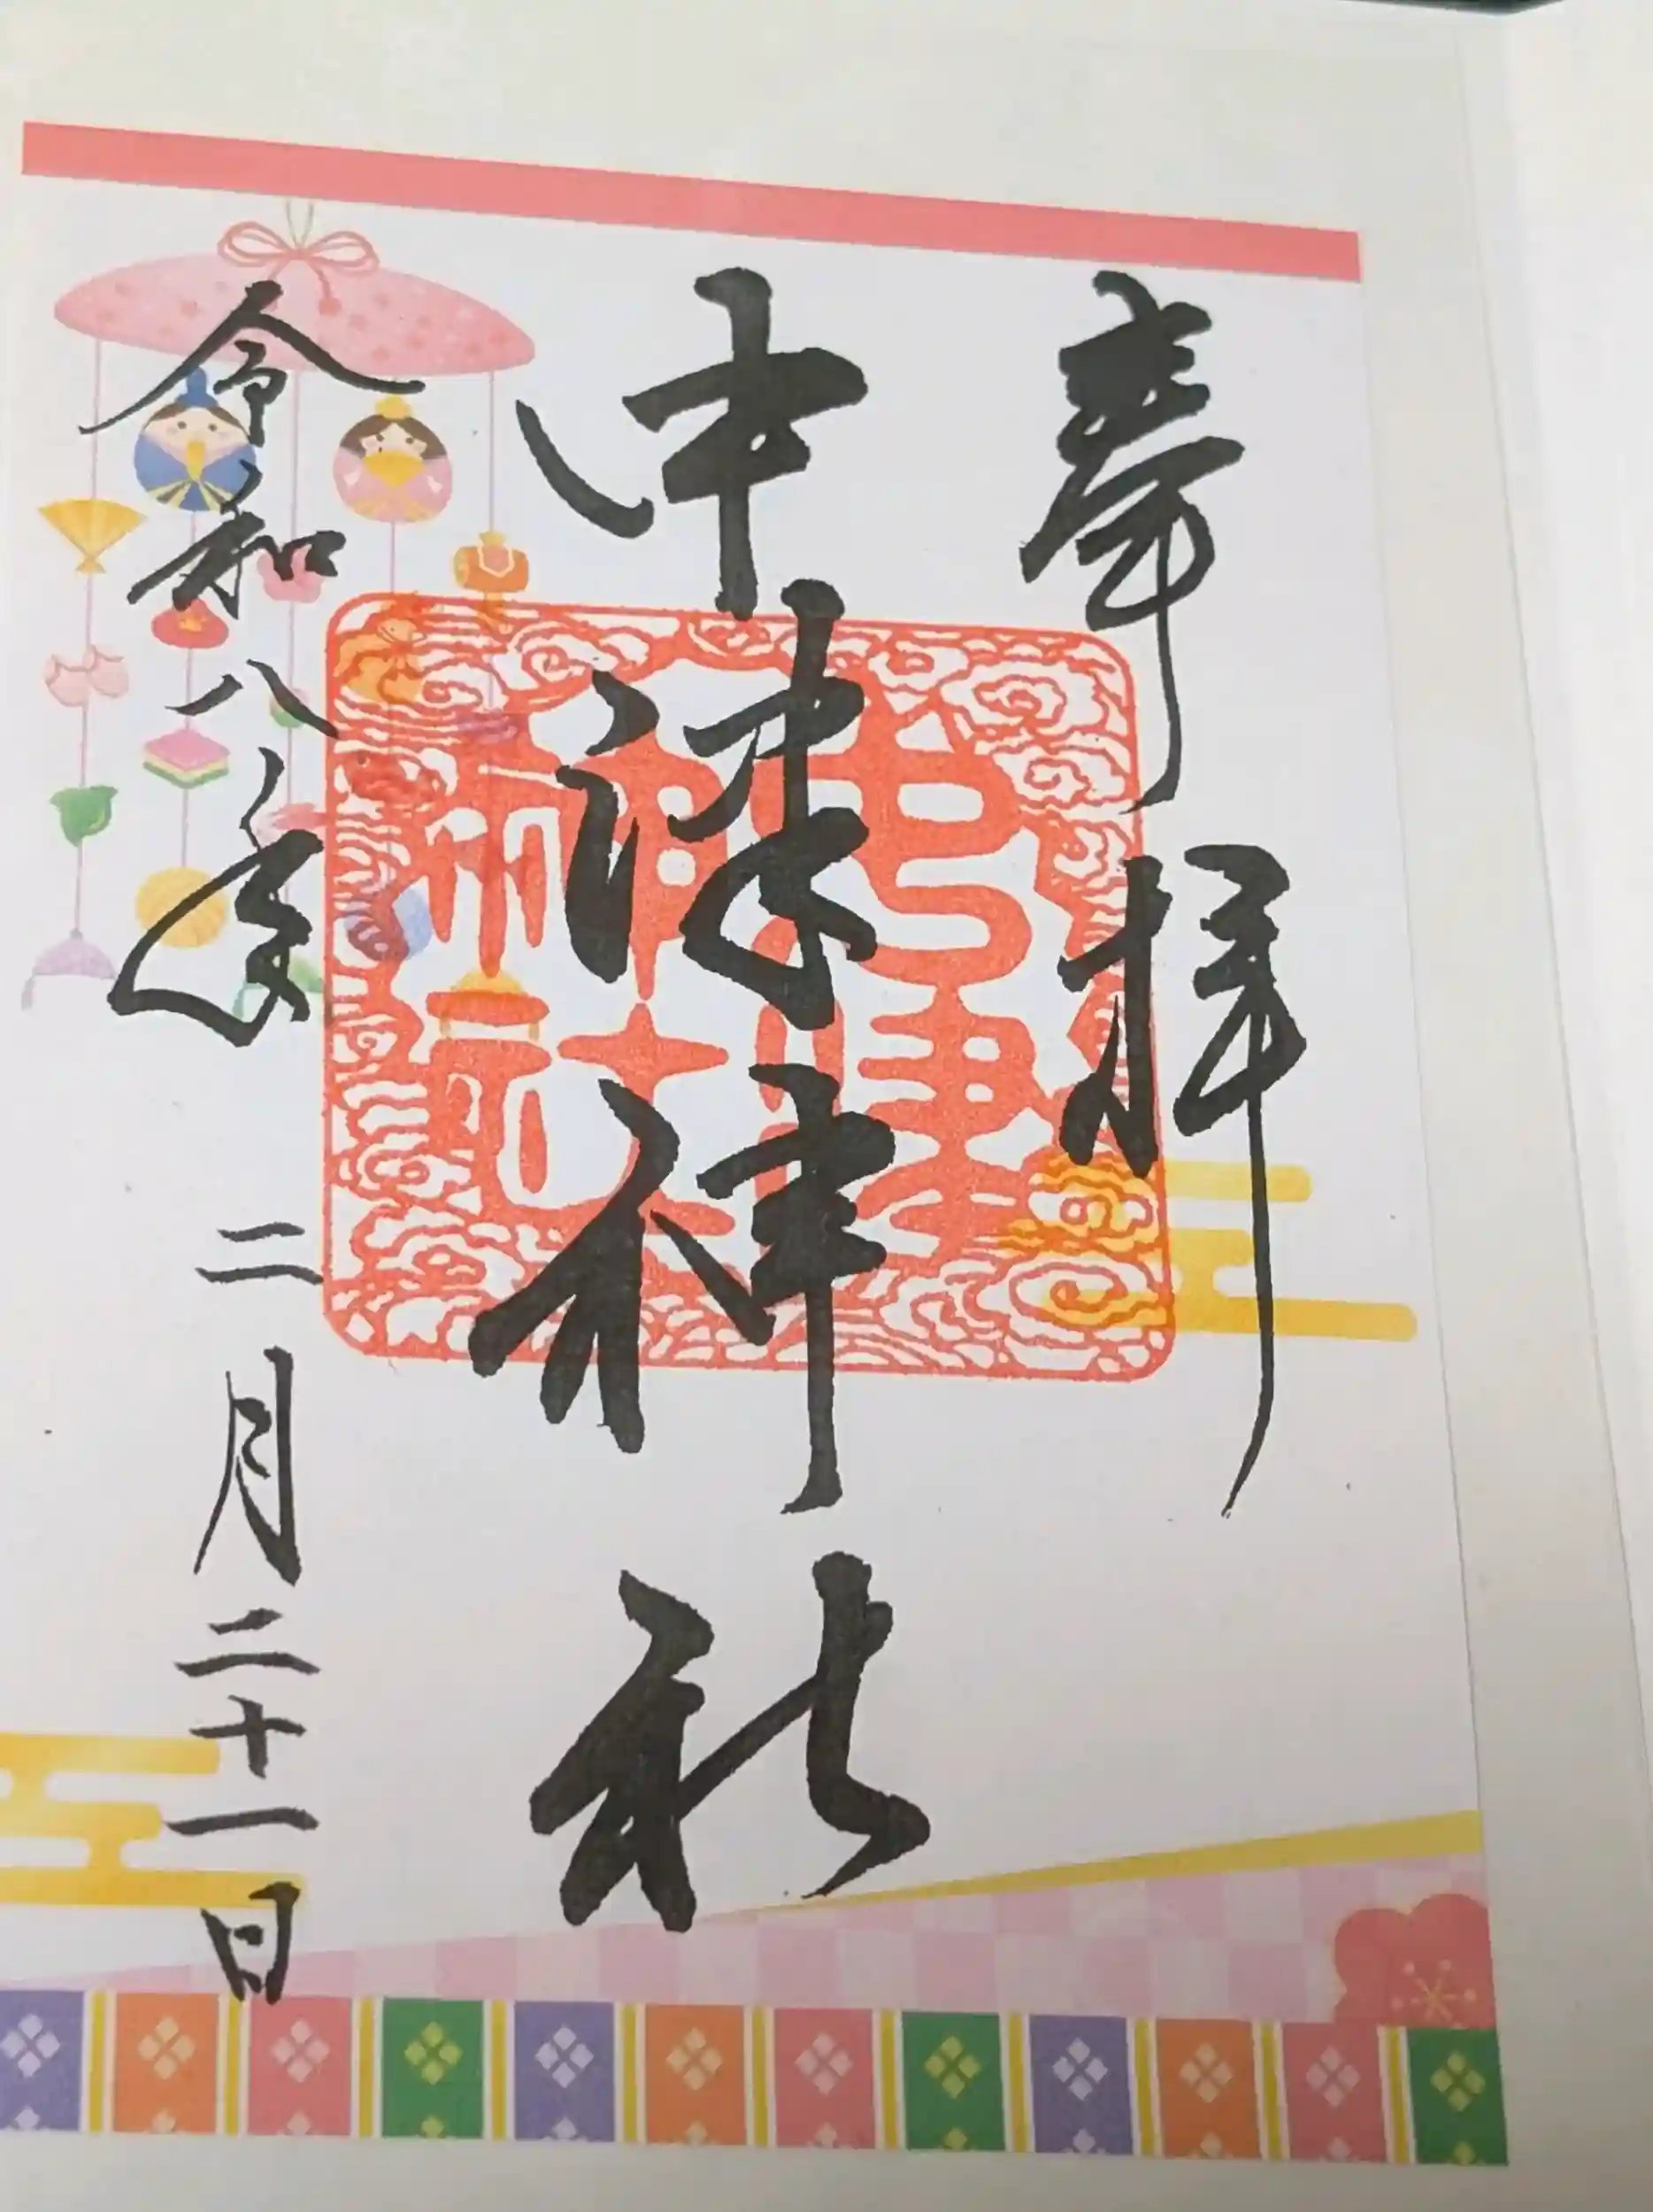 奉拝
中津神社
令和八年 二月二十一日
中津
神社